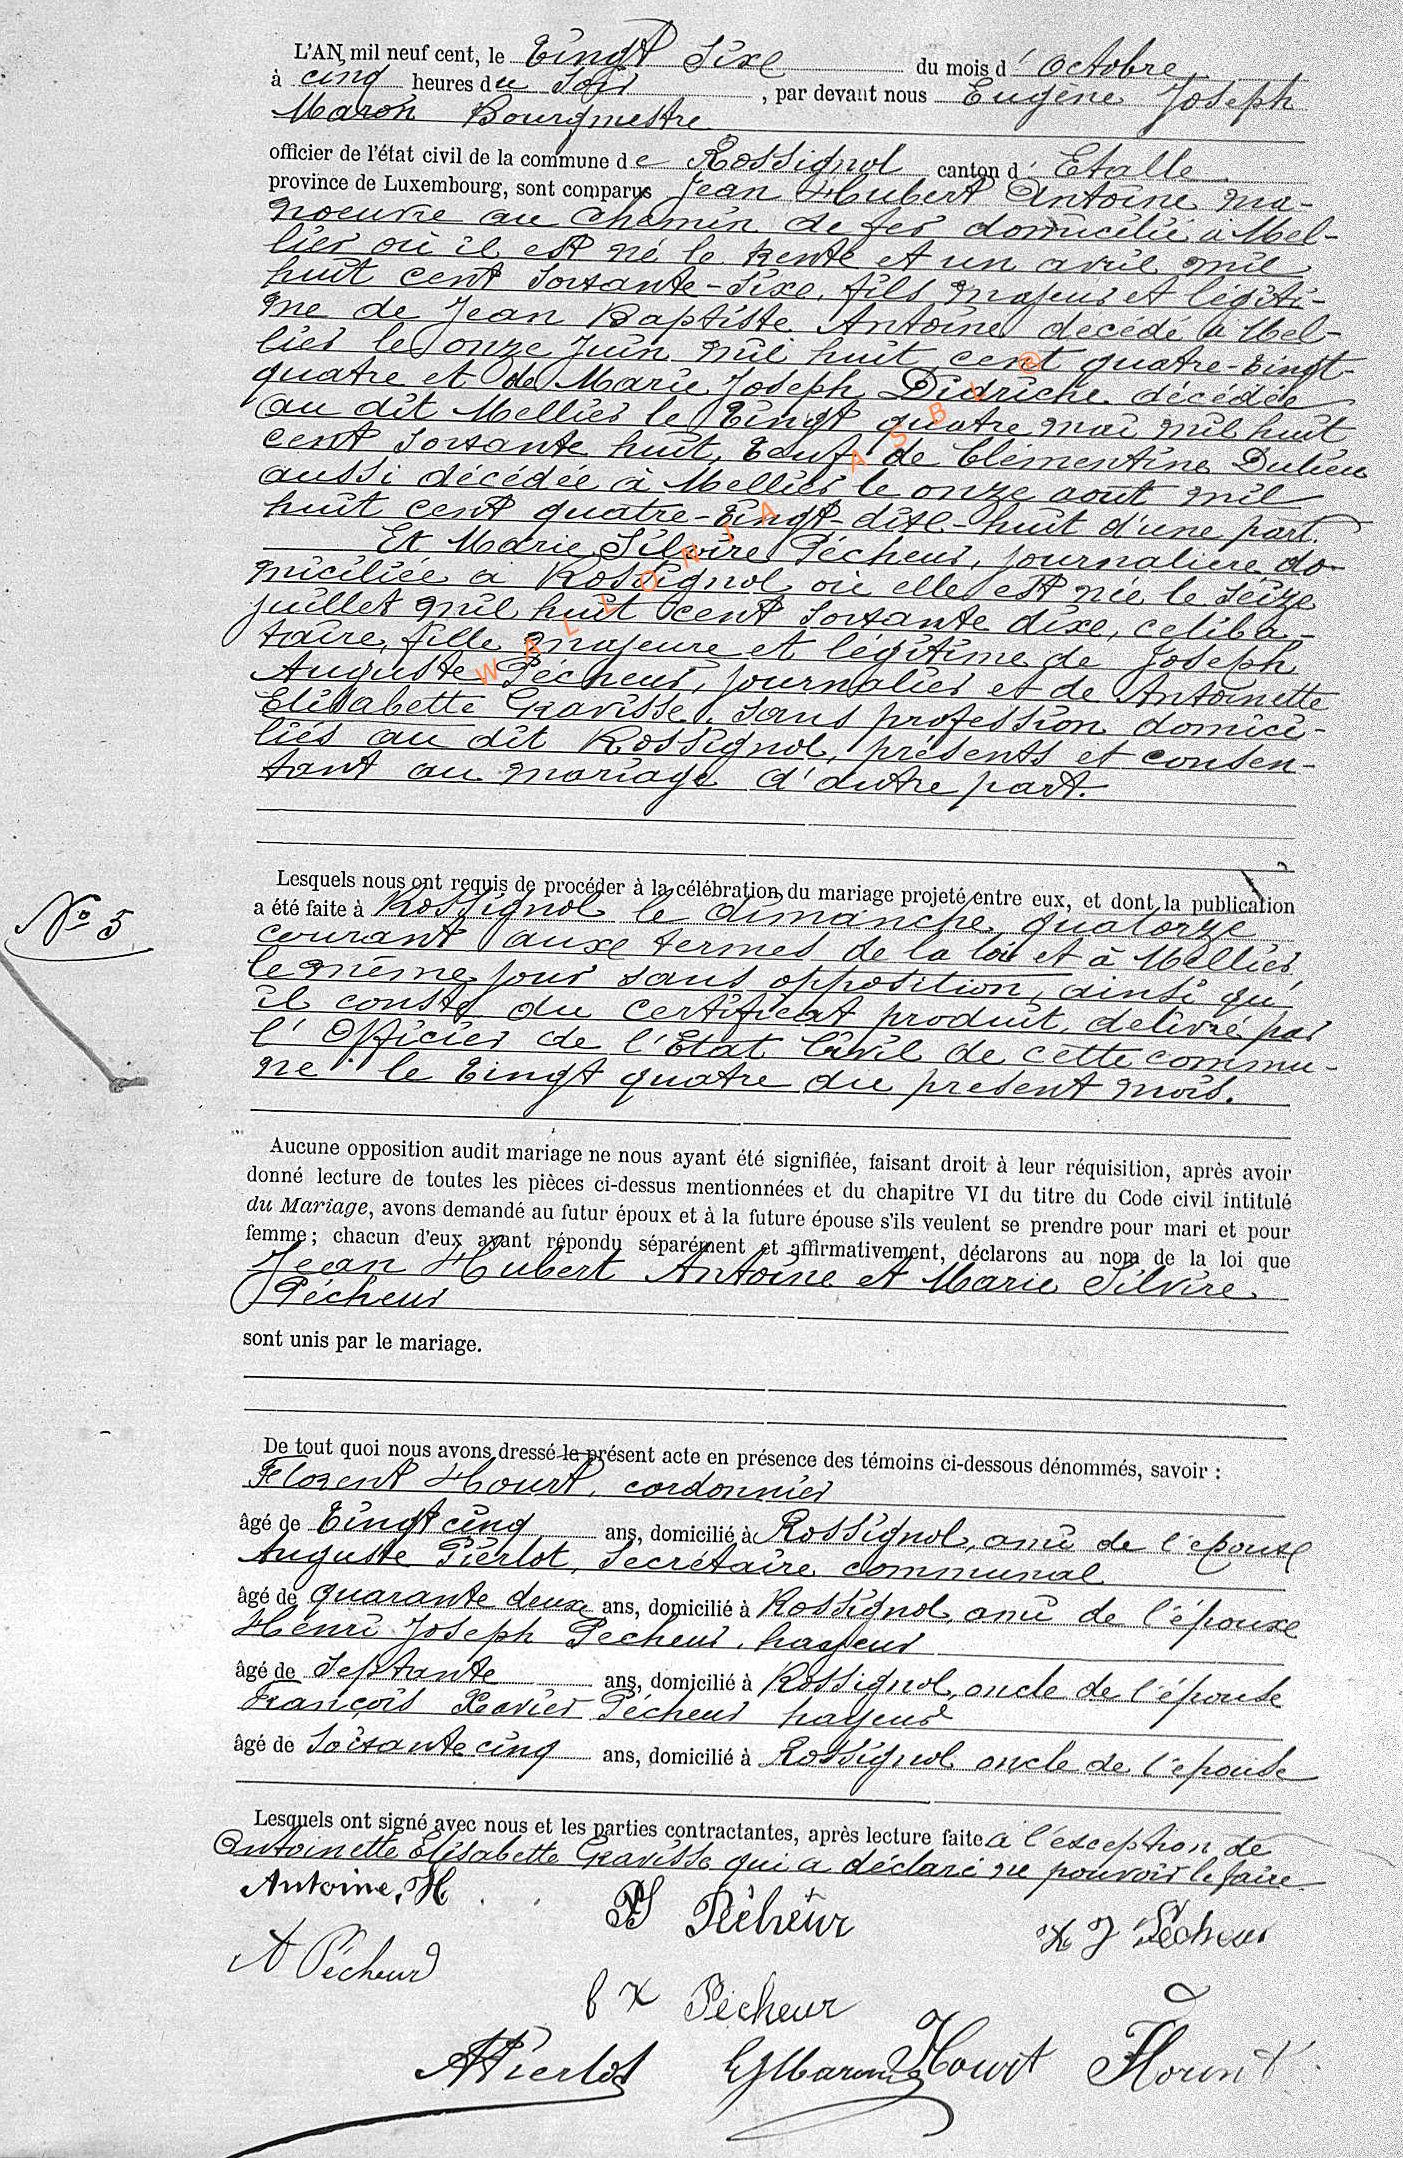 L'AN mil neuf cent, le Vingt Sixe du mois d' Octobre
à cinq heures du Soir, par devant nous Eugène Joseph
Maron Bourgmestre
officier de l'état civil de la commune de Rossignol canton d' Etalle
province de Luxembourg, sont comparus Jean Hubert Antoine ma-
noeuvre au chemin de fer domicilié à Mel-
lier où il est né le trente et un avril mil
huit cent soixante-sixe, fils majeur et légiti-
me de Jean Baptiste Antoine décédé à Mel-
lier le onze Juin mil huit cent quatre-vingt-
quatre et de Marie Joseph Didriche décédée
au dit Mellier le Vingt quatre mai mil huit
cent soixante huit, Veuf de Clémentine Dulieu
aussi décédée à Mellier le onze aout mil
huit cent quatre-vingt-dixe-huit d'une part.
Et Marie Silvire Pécheur, journaliere do-
miciliée à Rossignol où elle est née le seize
juillet mil huit cent soixante dixe, céliba-
taire, fille majeure et légitime de Joseph
Auguste Pécheur, journalier et de Antoinette
Elisabette Gravisse, sans profession domici-
liés au dit Rossignol, présents et consen-
tant au mariage d'autre part.
WALLONIA ASBL ®
Lesquels nous ont requis de procéder à la célébration du mariage projeté entre eux, et dont la publication
a été faite à Rossignol le dimanche quatorze
N° 5
courant auxe termes de la loi et à Mellier
le même jour sans opposition, ainsi qu'
il conste du certificat produit, délivré par
l' Officier de l'Etat Civil de cette commu-
ne le Vingt quatre du présent mois.
Aucune opposition audit mariage ne nous ayant été signifiée, faisant droit à leur réquisition, après avoir
donné lecture de toutes les pièces ci-dessus mentionnées et du chapitre VI du titre du Code civil intitulé
du Mariage, avons demandé au futur époux et à la future épouse s'ils veulent se prendre pour mari et pour
femme ; chacun d'eux ayant répondu séparément et affirmativement, déclarons au nom de la loi que
Jean Hubert Antoine et Marie Silvire
Pécheur
sont unis par le mariage.
De tout quoi nous avons dressé le présent acte en présence des témoins ci-dessous dénommés, savoir :
Florent Hourt, cordonnier
âgé de Vingt cinq ans, domicilié à Rossignol, ami de l'épouse
Auguste Pierlot, Secrétaire communal
âgé de quarante deuxe ans, domicilié à Rossignol, ami de l'épouxe
Henri Joseph Pécheur, hayeur
âgé de Septante ans, domicilié à Rossignol, oncle de l'épouse
François Xavier Pécheur hayeur
âgé de Soixante cinq ans, domicilié à Rossignol oncle de l'épouse
Lesquels ont signé avec nous et les parties contractantes, après lecture faite à l'exception de
Antoinette Elisabette Gravisse qui a déclaré ne pouvoir le faire.
Antoine, H Pécheur H J Pécheur
A Pécheur
f x Pécheur
APierlot EJMaron Hourt Florent